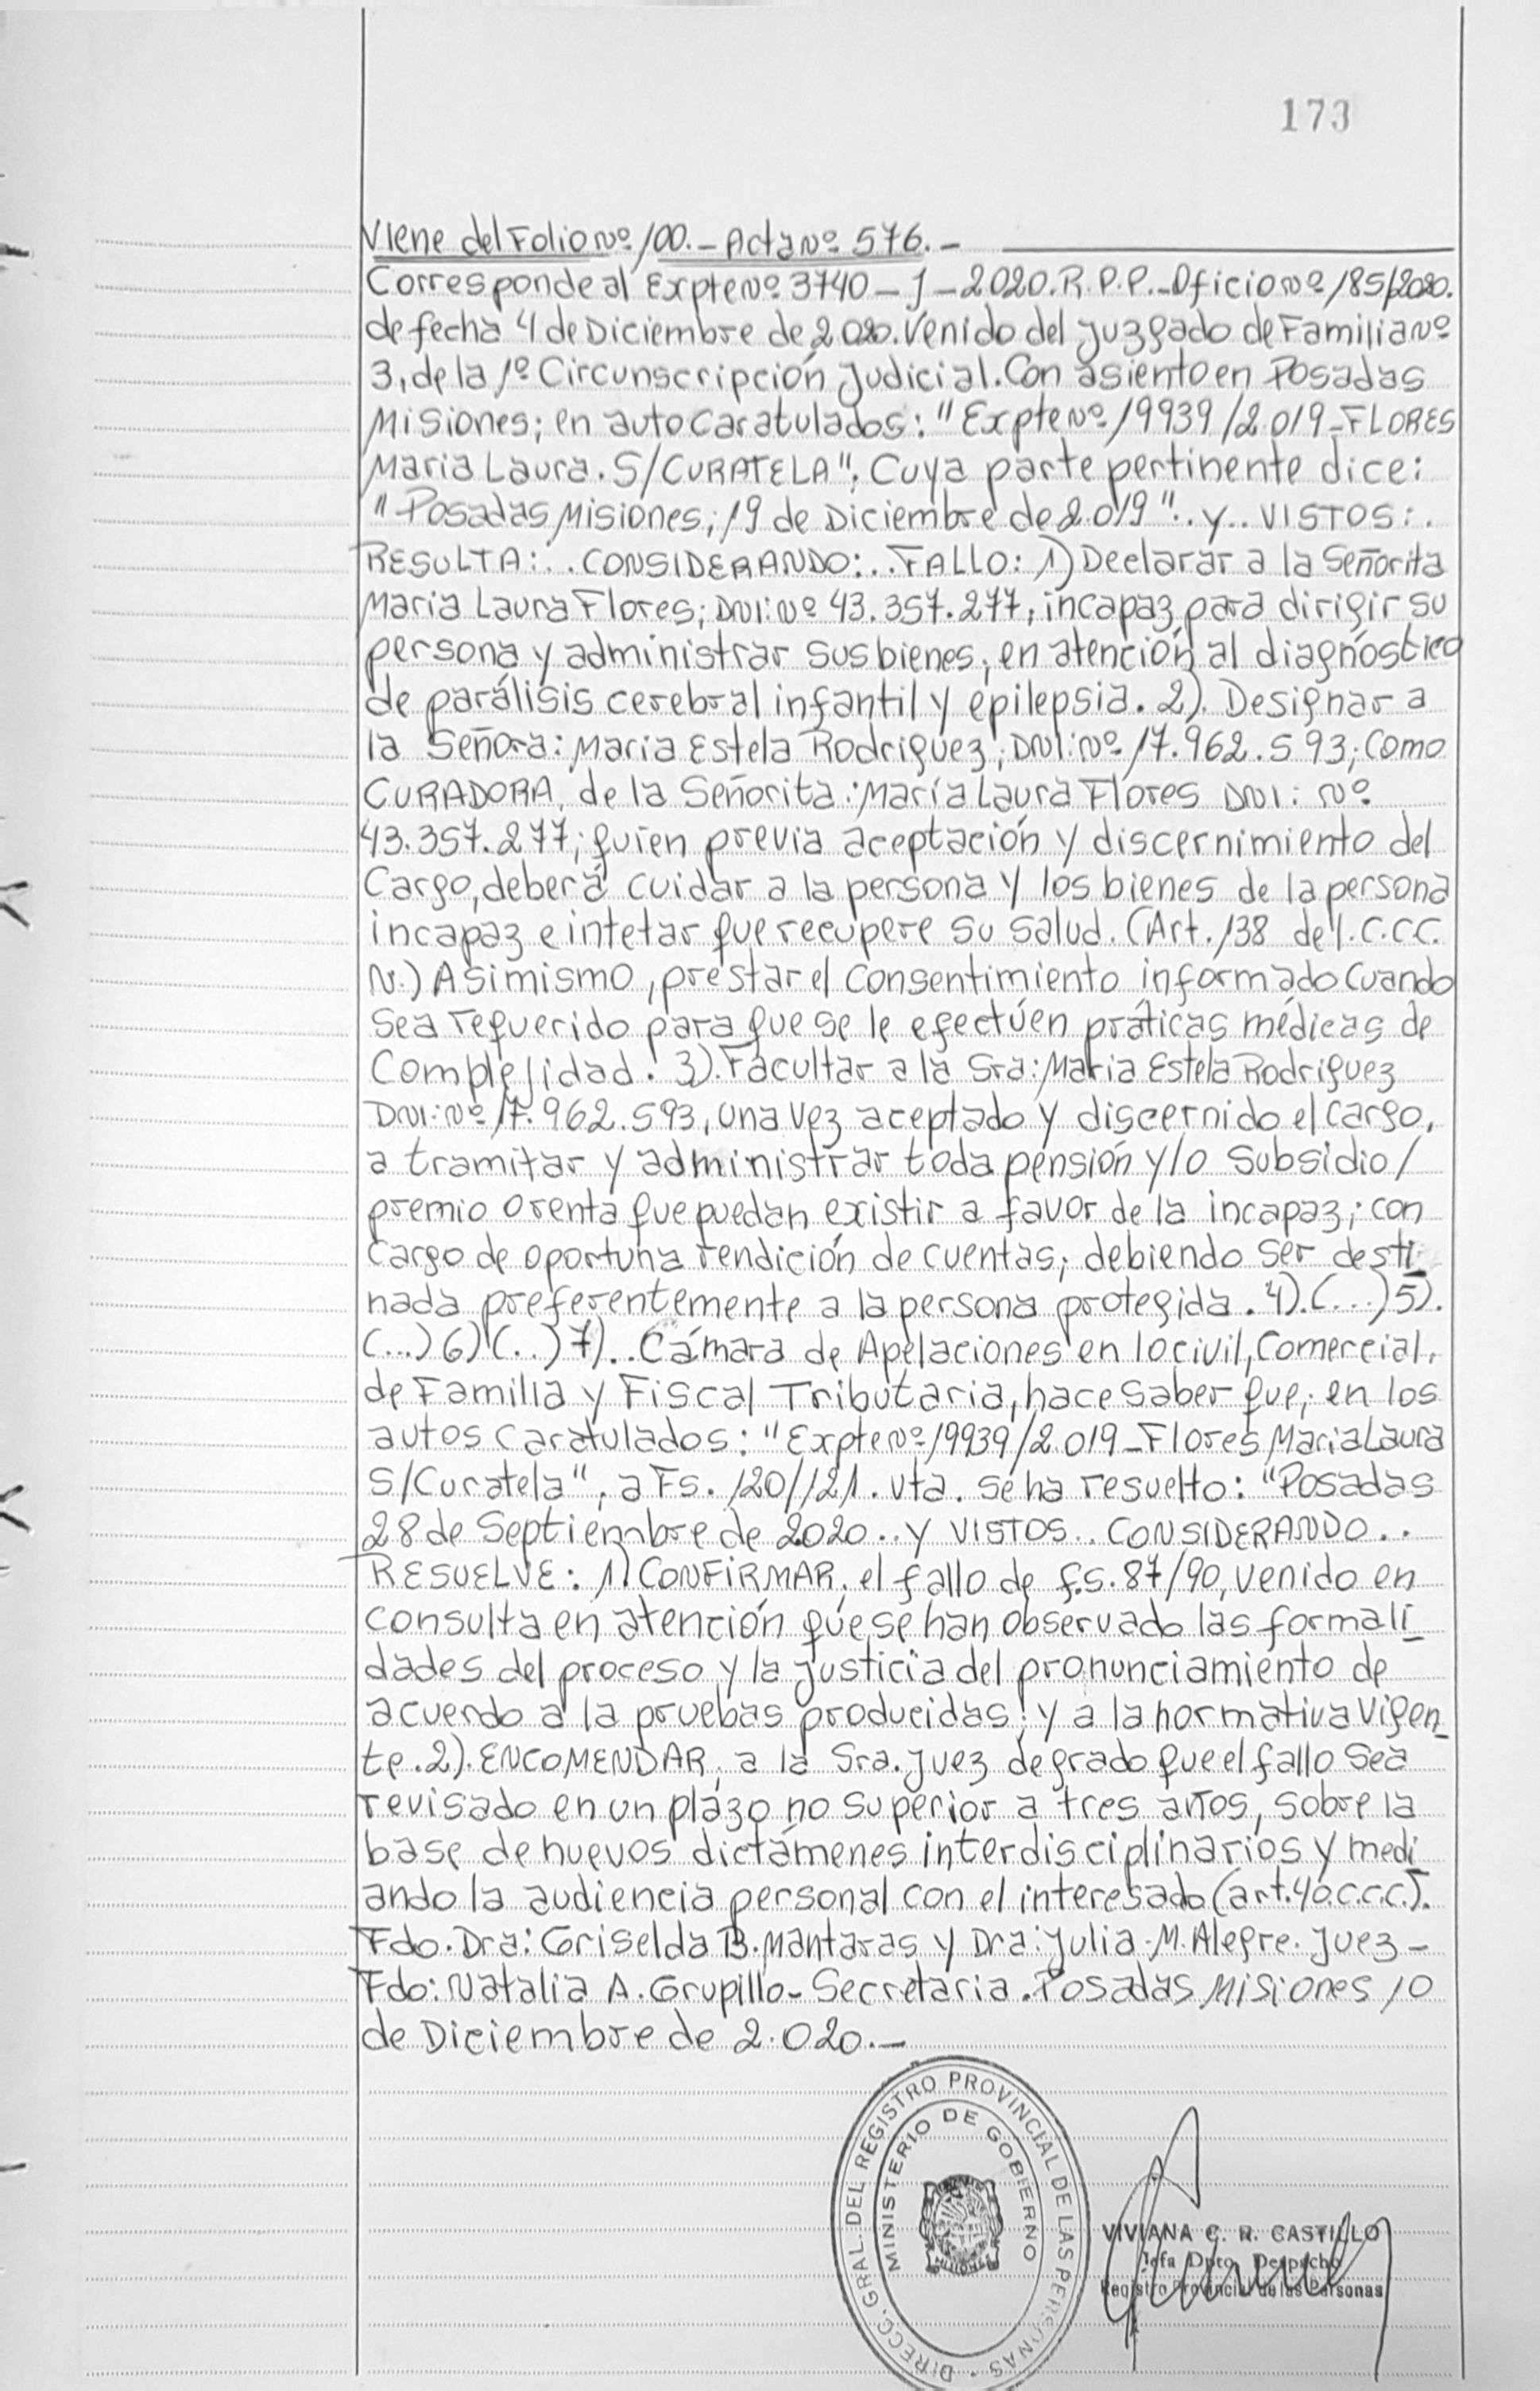 173
Viene del Folio Nº 100.- Acta Nº 576.-
Corresponde al Expte Nº 3740-J-2020.R.P.P.-Oficio Nº 185/2020.
de fecha 4 de Diciembre de 2020. Venido del Juzgado de Familia Nº
3, de la 1º Circunscripción Judicial. Con asiento en Posadas
Misiones; en auto caratulados: "Expte Nº 19939/2.019-FLORES
Maria Laura. S/CURATELA", Cuya parte pertinente dice:
"Posadas Misiones, 19 de Diciembre de 2.019".. y.. VISTOS:.
RESULTA:.. CONSIDERANDO:.. FALLO: 1) Declarar a la Señorita
Maria Laura Flores; DNI: Nº 43.357.277, incapaz para dirigir su
persona y administrar sus bienes, en atención al diagnóstico
de parálisis cerebral infantil y epilepsia. 2). Designar a
la Señora: Maria Estela Rodriguez, DNI: Nº 17.962.593; Como
CURADORA, de la Señorita: María Laura Flores DNI: Nº
43.357.277; quien previa aceptación y discernimiento del
Cargo, deberá cuidar a la persona y los bienes de la persona
incapaz e intetar que recupere su salud. (Art. 138 del. C.C.C.
N.) Asimismo, prestar el Consentimiento informado Cuando
Sea requerido para que se le efectúen práticas médicas de
Complejidad. 3). Facultar a la Sra: Maria Estela Rodriguez
DNI: Nº 17.962.593, una vez aceptado y discernido el cargo,
a tramitar y administrar toda pensión y/o Subsidio/
premio o renta que puedan existir a favor de la incapaz; con
Cargo de oportuna rendición de cuentas; debiendo ser desti-
nada preferentemente a la persona protegida. 4).(...) 5).
(...) 6) (..) 7).. Cámara de Apelaciones en lo civil, Comercial,
de Familia y Fiscal Tributaria, hace saber que, en los
autos caratulados: "Expte Nº 19939/2.019-Flores Maria Laura
S/Curatela", a Fs. 120//121. vta. se ha resuelto: "Posadas
28 de Septiembre de 2020.. y VISTOS.. CONSIDERANDO..
RESUELVE: 1). CONFIRMAR, el fallo de f.s. 87/90, venido en
consulta en atención que se han observado las formali-
dades del proceso y la justicia del pronunciamiento de
acuerdo a la pruebas producidas y a la normativa vigen-
te. 2). ENCOMENDAR, a la Sra. Juez de grado que el fallo sea
revisado en un plazo no superior a tres años, sobre la
base de nuevos dictámenes interdisciplinarios y medi-
ando la audiencia personal con el interesado (art. 40.c.c.c.).
Fdo. Dra: Griselda B. Mantaras y Dra: Julia M. Alegre. Juez-
Fdo: Natalia A. Grupillo- Secretaria. Posadas Misiones 10
de Diciembre de 2.020.-
DIRECC. GRAL. DEL REGISTRO PROVINCIAL DE LAS PERSONAS
MINISTERIO DE GOBIERNO
VIVIANA C. R. CASTILLO
Jefa Dpto. Despacho
Registro Provincial de las Personas